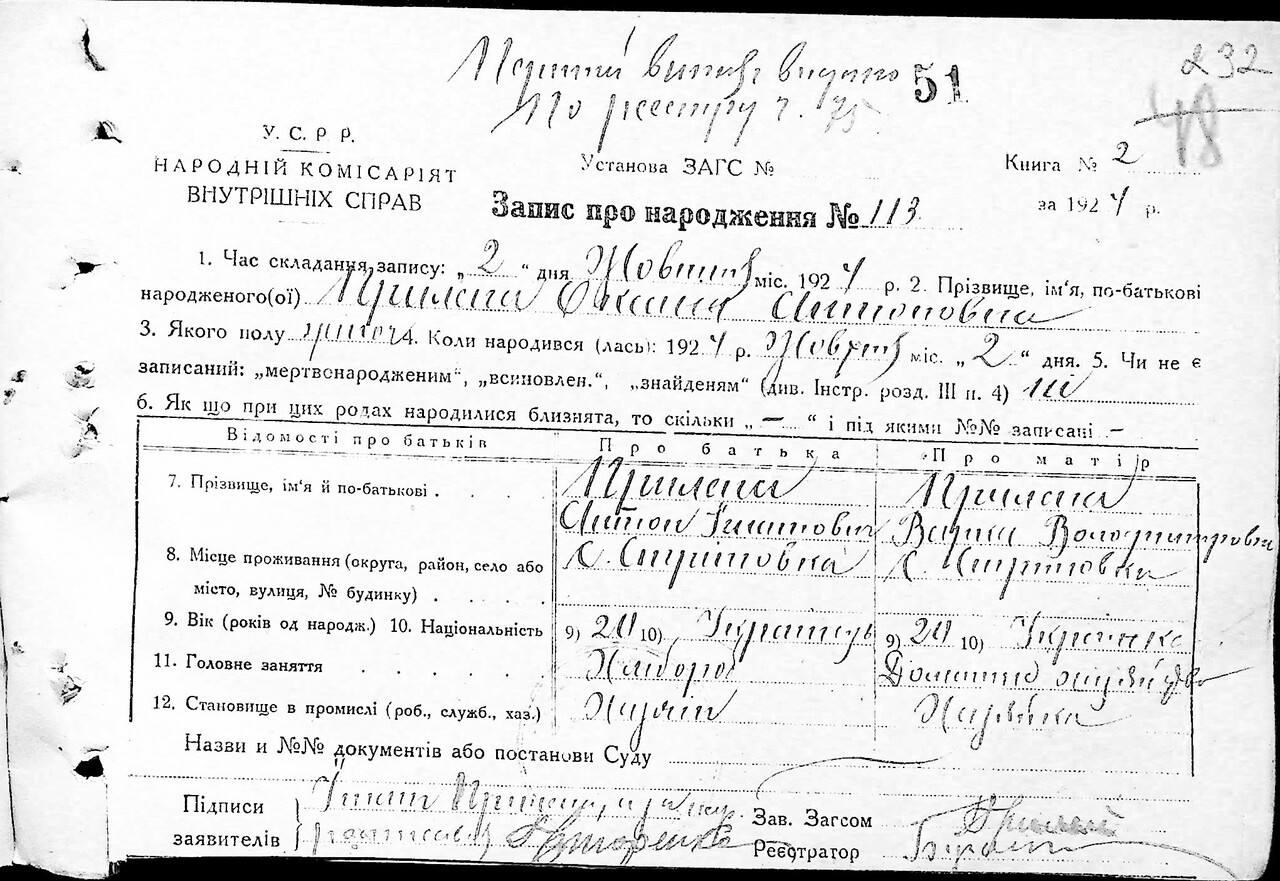 232
48
Перший випис видано 51
По реестру ч. 75
У. С. Р. Р.
НАРОДНІЙ КОМІСАРІЯТ
ВНУТРІШНІХ СПРАВ
Установа ЗАГС №
Книга № 2
за 1924 р.
Запис про народження № 113
1. Час складання запису: „ 2 “ дня Жовтня міс. 1924 р. 2. Прізвище, ім'я, по-батькові
народженого(ої) Прилепа Оксана Антоновна
3. Якого полу жіноч 4. Коли народився (лась): 1924 р. Жовтня міс. „ 2 “ дня. 5. Чи не є
записаний: „мертвонародженим“, „всиновлен.“, „знайденям“ (див. Інстр. розд. III п. 4) ні
6. Як що при цих родах народилися близнята, то скільки „ — “ і під якими №№ записані —
Відомості про батьків Про батька Про матір
7. Прізвище, ім'я й по-батькові . . . . Прилепа Прилепа
Антон Ігнатович Варка Володимировна
8. Місце проживання (округа, район, село або С. Стритовка С. Стритовка
місто, вулиця, № будинку) . . . . .
9. Вік (років од народж.) 10. Національність 9) 20 10) Українець 9) 20 10) Українка
11. Головне заняття . . . . . Хлібороб Домашнє хазяйство
12. Становище в промислі (роб., служб., хаз.) Хазяїн Хазяйка
Назви и №№ документів або постанови Суду
Підписи
заявителів
Зав. Загсом
Реєстратор